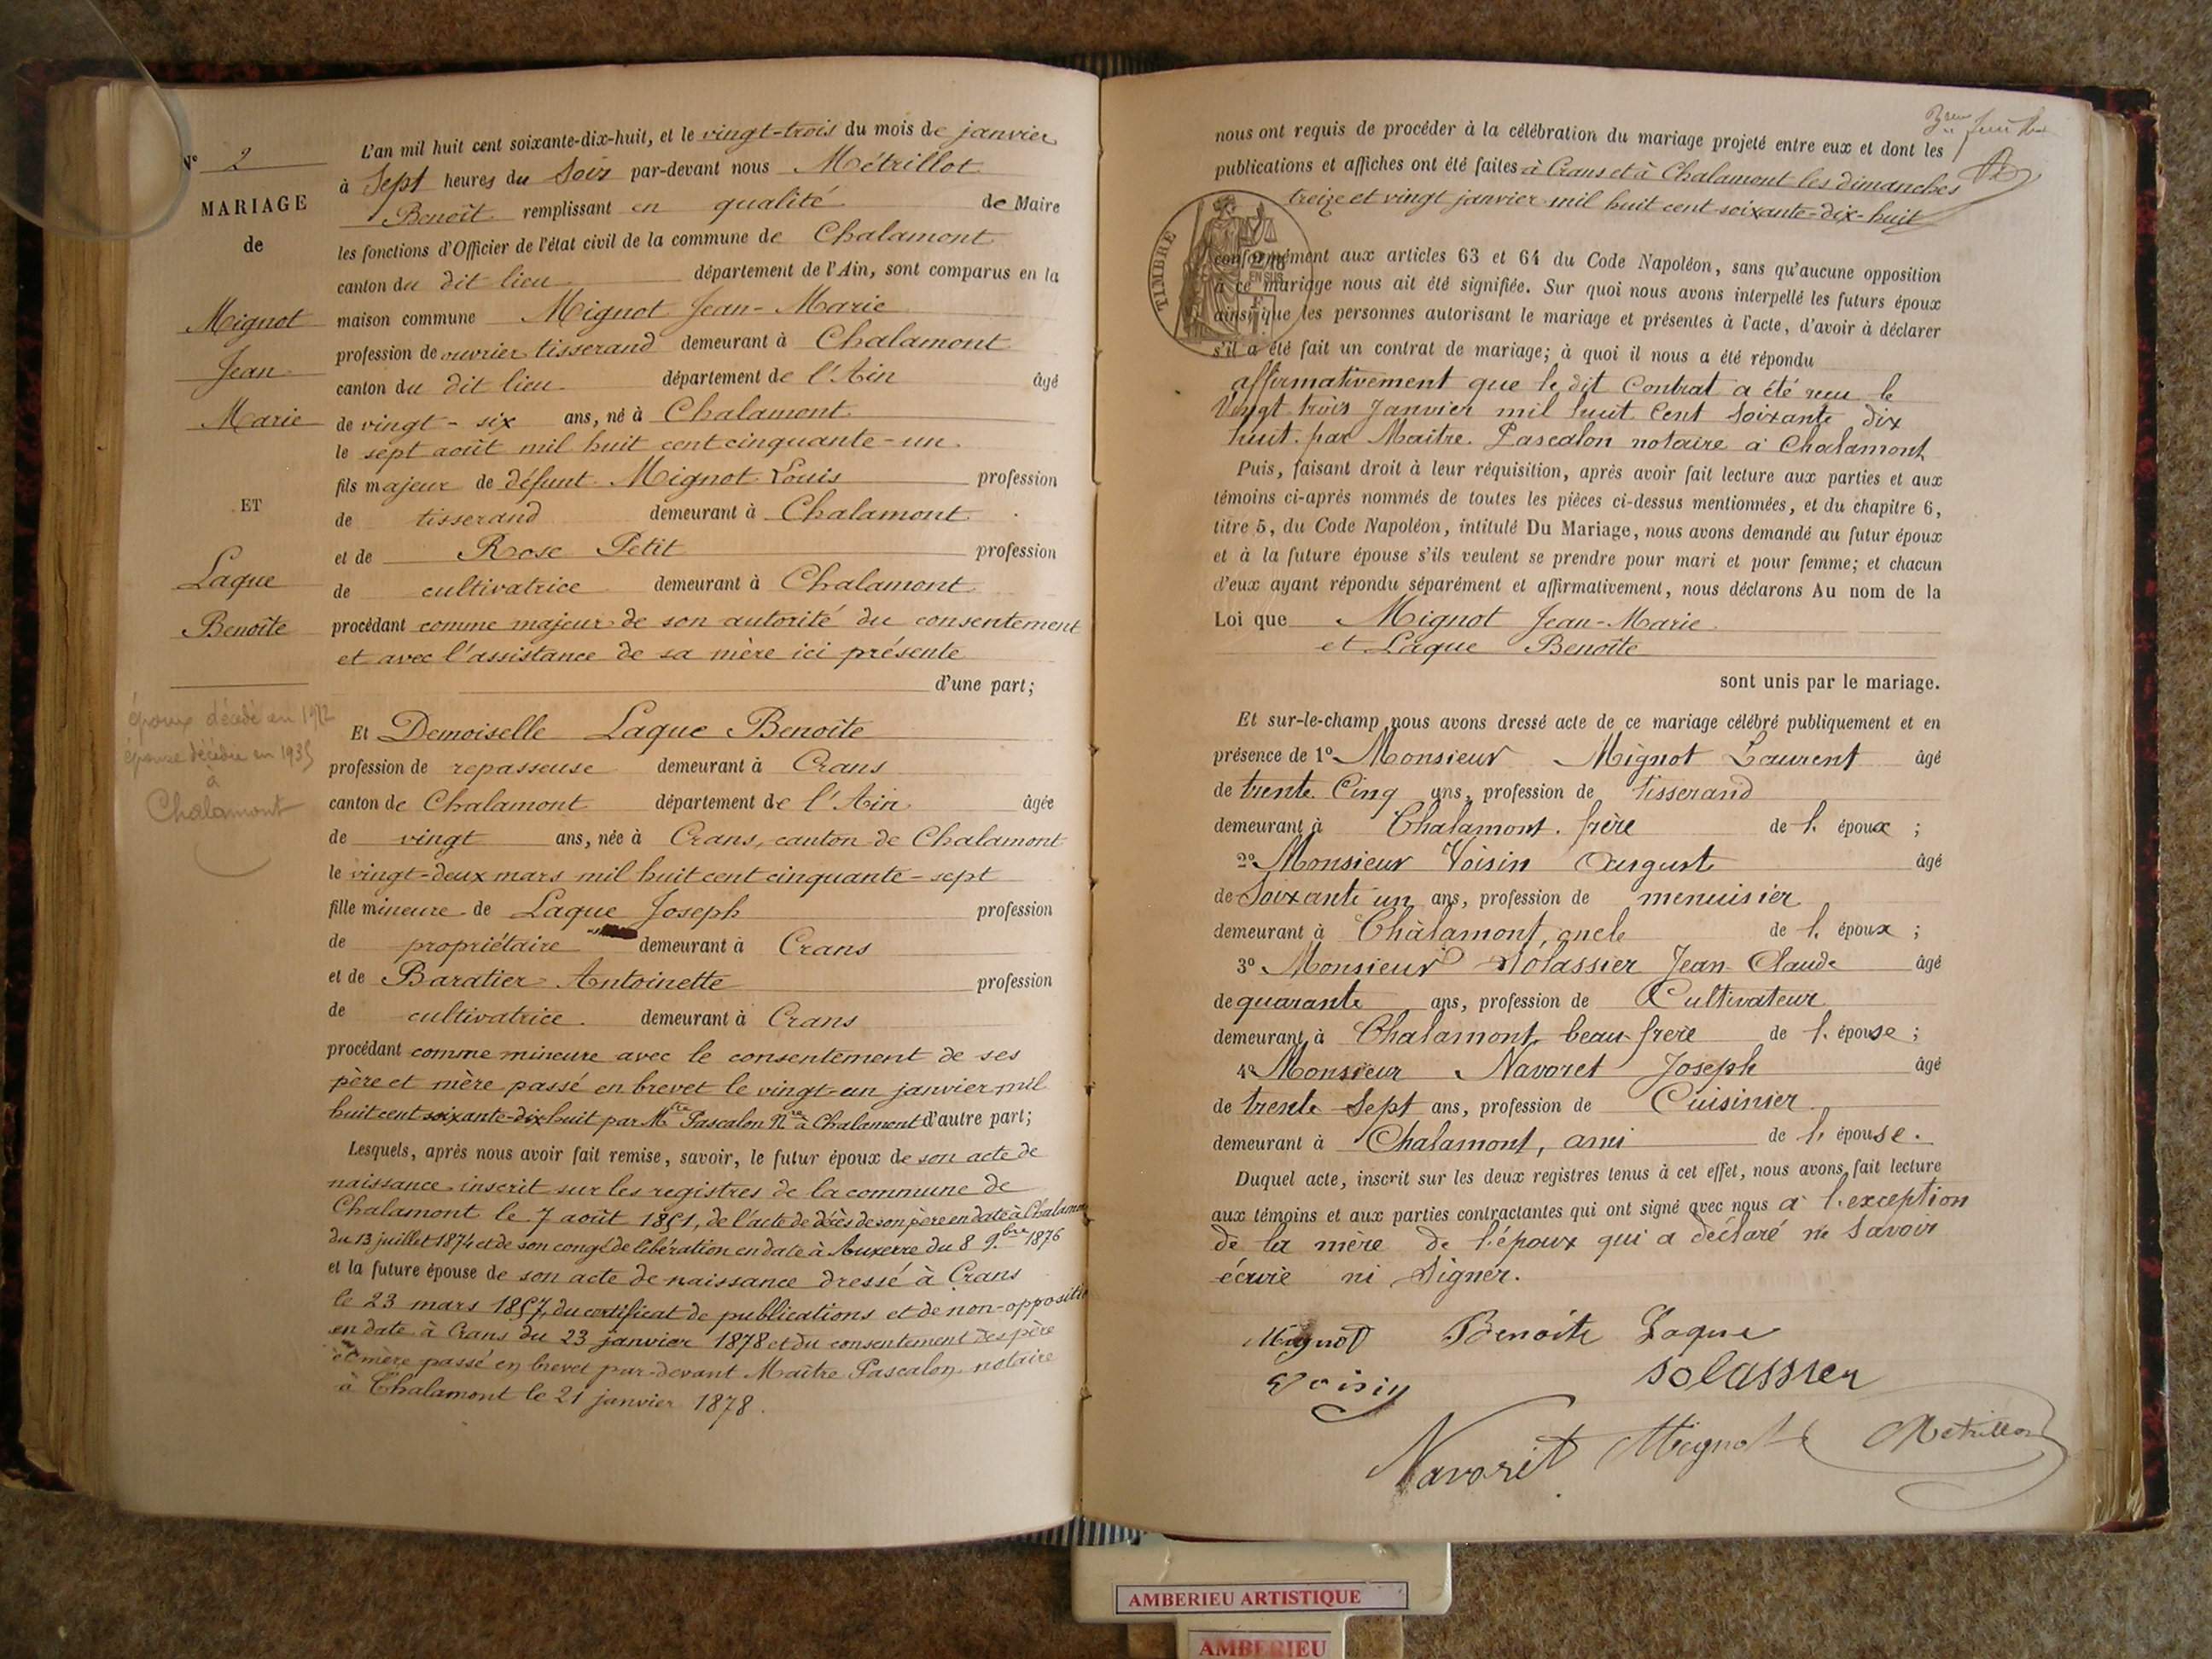 N° 2
MARIAGE
de
Mignot
Jean
Marie
ET
Laque
Benoîte
époux décédé en 1912
épouse décédée en 1935
à
Chalamont
L'an mil huit cent soixante-dix-huit, et le vingt-trois du mois de janvier
à Sept heures du Soir par-devant nous Métrillot
Benoît remplissant en qualité de Maire
les fonctions d'Officier de l'état civil de la commune de Chalamont
canton du dit lieu département de l'Ain, sont comparus en la
maison commune Mignot Jean-Marie
profession de ouvrier tisserand demeurant à Chalamont
canton du dit lieu département de l'Ain âgé
de vingt-six ans, né à Chalamont
le sept août mil huit cent cinquante-un.
fils majeur de défunt Mignot Louis profession
de tisserand demeurant à Chalamont
et de Rose Petit profession
de cultivatrice demeurant à Chalamont
procédant comme majeur de son autorité du consentement
et avec l'assistance de sa mère ici présente
d'une part;
Et Demoiselle Laque Benoîte
profession de repasseuse demeurant à Crans
canton de Chalamont département de l'Ain âgée
de vingt ans, née à Crans, canton de Chalamont
le vingt-deux mars mil huit cent cinquante-sept
fille mineure de Laque Joseph profession
de propriétaire demeurant à Crans
et de Baratier Antoinette profession
de cultivatrice. demeurant à Crans
procédant comme mineure avec le consentement de ses
père et mère passé en brevet le vingt-un janvier mil
huit cent soixante-dix huit par Mtre Pascalon Nre à Chalamont d'autre part;
Lesquels, après nous avoir fait remise, savoir, le futur époux de son acte de
naissance inscrit sur les registres de la commune de
Chalamont le 7 août 1851, de l'acte de décès de son père en date à Chalamont
du 13 juillet 1874 et de son congé de libération en date à Auxerre du 8 9.bre 1876
et la future épouse de son acte de naissance dressé à Crans
le 23 mars 1857, du certificat de publications et de non-opposition
en date à Crans du 23 janvier 1878 et du consentement des père
et mère passé en brevet par-devant Maître Pascalon notaire
à Chalamont le 21 janvier 1878.
nous ont requis de procéder à la célébration du mariage projeté entre eux et dont les
publications et affiches ont été faites à Crans et à Chalamont les dimanches
treize et vingt janvier mil huit cent soixante-dix-huit
TIMBRE
EN SUS
conformément aux articles 63 et 64 du Code Napoléon, sans qu'aucune opposition
à ce mariage nous ait été signifiée. Sur quoi nous avons interpellé les futurs époux
ainsi que les personnes autorisant le mariage et présentes à l'acte, d'avoir à déclarer
s'il a été fait un contrat de mariage; à quoi il nous a été répondu
affirmativement que le dit Contrat a été reçu le
Vingt trois Janvier mil huit Cent Soixante dix
huit. par Maitre. Pascalon notaire à Chalamont
Puis, faisant droit à leur réquisition, après avoir fait lecture aux parties et aux
témoins ci-après nommés de toutes les pièces ci-dessus mentionnées, et du chapitre 6,
titre 5, du Code Napoléon, intitulé Du Mariage, nous avons demandé au futur époux
et à la future épouse s'ils veulent se prendre pour mari et pour femme; et chacun
d'eux ayant répondu séparément et affirmativement, nous déclarons Au nom de la
Loi que Mignot Jean-Marie
et Laque Benoîte
sont unis par le mariage.
Et sur-le-champ nous avons dressé acte de ce mariage célébré publiquement et en
présence de 1° Monsieur Mignot Laurent âgé
de trente Cinq ans, profession de tisserand
demeurant à Chalamont. frère de l. époux ;
2° Monsieur Voisin August âgé
de Soixante un ans, profession de menuisier
demeurant à Chalamont, oncle de l. époux ;
3° Monsieur Solassier Jean Claude âgé
de quarante ans, profession de Cultivateur
demeurant à Chalamont, beau-frere de l. épouse ;
4° Monsieur Navoret Joseph âgé
de trente Sept ans, profession de Cuisinier
demeurant à Chalamont, ami de l. épouse.
Duquel acte, inscrit sur les deux registres tenus à cet effet, nous avons fait lecture
aux témoins et aux parties contractantes qui ont signé avec nous à l'exception
de la mère de l'époux qui a déclaré ne Savoir
écrire ni Signer.
Mignot Benoite Laque
Voisin Solassier
Navoret Mignot Metrillot
AMBERIEU ARTISTIQUE
AMBERIEU